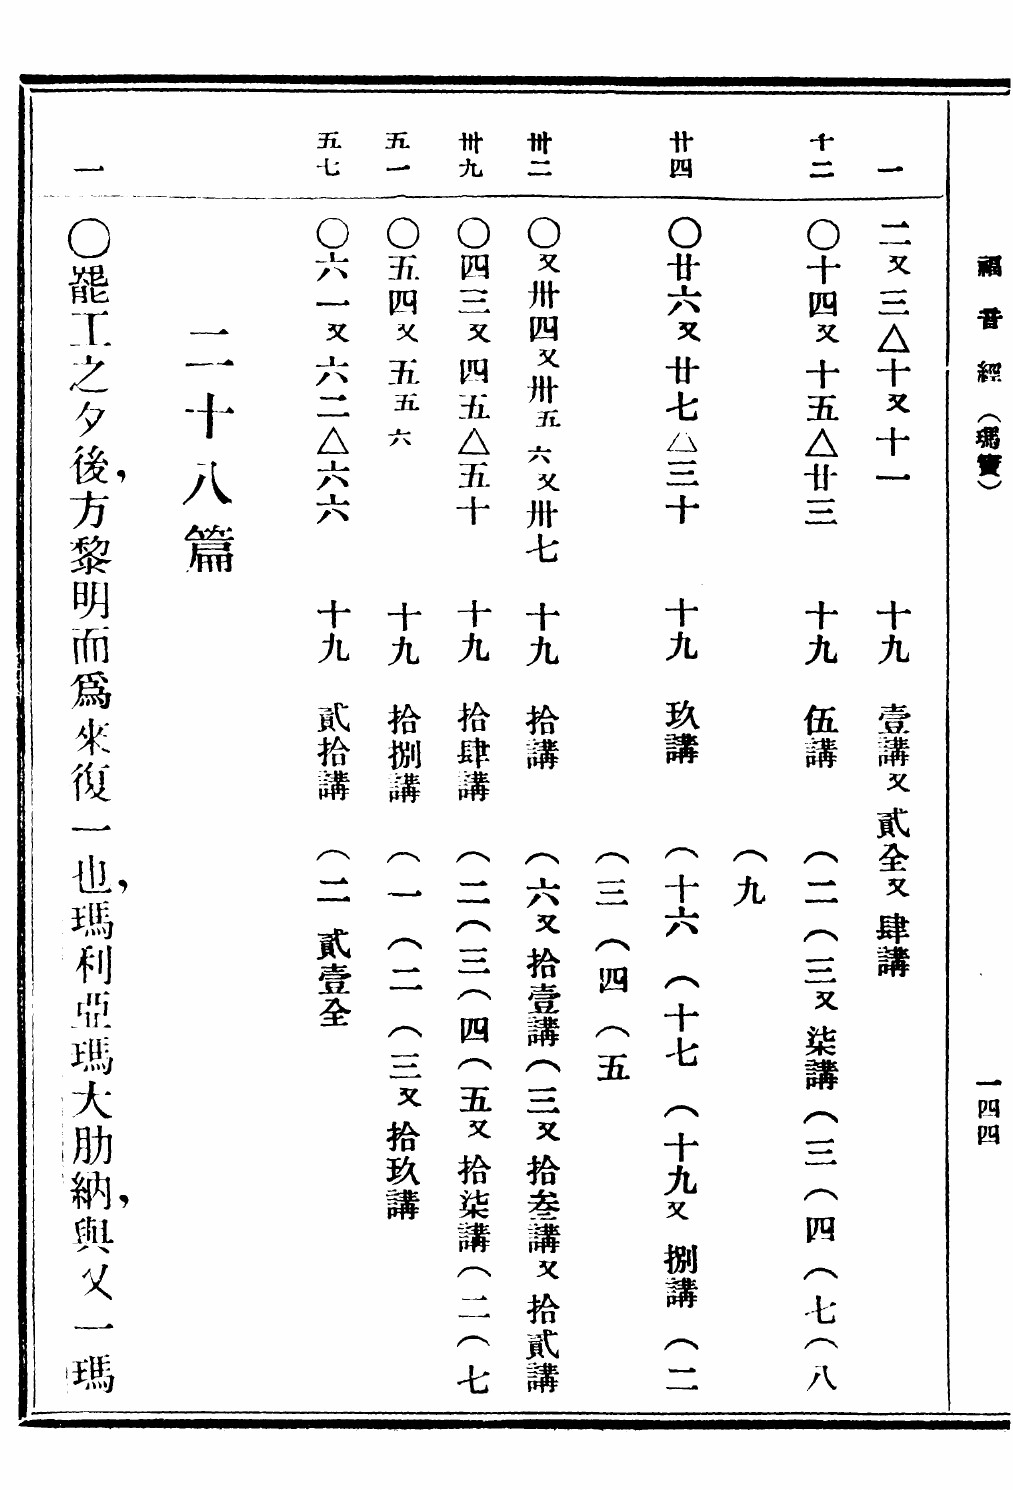 福音經（瑪竇）　一四四
一　二又三△十又十一　十九　壹講又貳全又肆講
十二　〇十四又十五△廿三　十九　伍講　（二（三又柒講（三（四（七（八
（九
廿四　〇廿六又廿七△三十　十九　玖講　（十六（十七（十九又捌講（二
（三（四（五
卅二　〇又卅四又卅五六又卅七　十九　拾講　（六又拾壹講（三又拾叁講又拾貳講
卅九　〇四三又四五△五十　十九　拾肆講　（二（三（四（五又拾柒講（二（七
五一　〇五四又五五五六　十九　拾捌講　（一（二（三又拾玖講
五七　〇六一又六二△六六　十九　貳拾講　（二貳壹全
二十八篇
一　〇罷工之夕後，方黎明而爲來復一也，瑪利亞瑪大肋納，與又一瑪